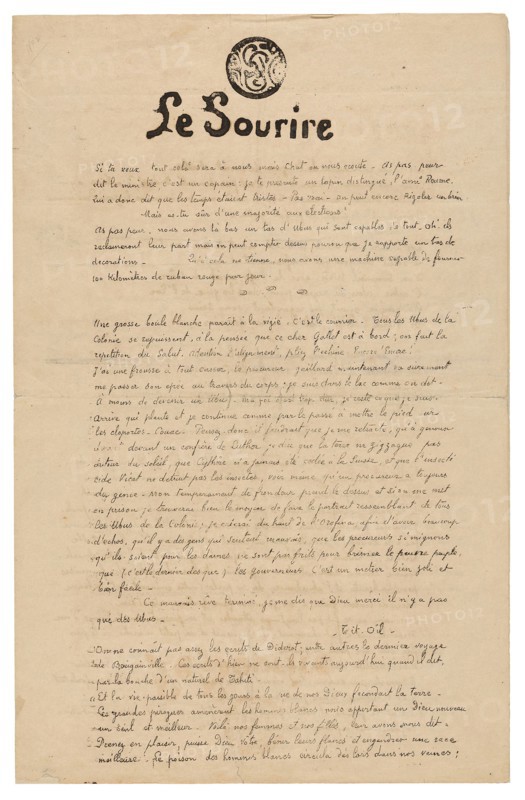 Le Sourire
Si tu veux tout cela sera à nous mais chut on nous écoute - As pas peur
dit le ministre c'est un copain: je te présente un lapin distingué, l'ami
qui a donc dit que les temps étaient tristes - Pas vrai - on peut encore rigoler un brin
Mais es-tu sûr d'une majorité aux élections?
As pas peur, nous avons là bas un tas d'Ubus qui sont capables de tout - ils
réclameront leur part mais on peut compter dessus pourvu que je rapporte un tas de
décorations - Qu'à cela ne tienne, nous avons une machine capable de fournir
100 kilomètres de ruban rouge par jour.
Une grosse boule blanche paraît à la vigie, c'est le courrier. Tous les Ubus de la
Colonie se redressent, à la pensée que ce cher Gallet est à bord; on fait la
répétition du Salut.
J'ai une frousse à tout casser, le procureur, gaillard maintenant va surement
me passer son épée au travers du corps: je suis dans le lac comme on dit.
A moins de devenir un Ubu! je reste ce que je suis.
Arrive qui plante et je continue comme par le passé à mettre le pied sur
les cloportes. donc il faudrait que je me rétracte, qu'à genoux
devant un confrère de je dise que la terre ne zigzague pas
autour du soleil, que Cythère n'a jamais été en Suisse, et que l'insecti
cide Vicat ne détruit pas les insectes, voir même qu'un procureur a toujours
du génie - mon tempérament de frondeur prend le dessus et si on me met
en prison je trouverai bien le moyen de faire le portrait ressemblant de tous
les Ubus de la Colonie; je crierai du haut de l'Orofena, afin d'avoir beaucoup
d'échos, qu'il y a des gens qui sentent mauvais, que les procureurs si mignons
qu'ils soient pour les dames ne sont parfaits pour le pauvre peuple,
que (c'est le dernier des que), les gouverneurs C'est un métier bien joli et
bien facile -
Ce mauvais rêve terminé, je me dis que Dieu merci il n'y a pas
que des Ubus -
Tit-Oïl -
On ne connaît pas assez les écrits de Diderot; entre autres le dernier voyage
de Bougainville. Ces écrits d'hier ne sont-ils vivants aujourd'hui quand il dit,
par la bouche d'un naturel de Tahiti.
Et la vie paisible de tous les jours à la vie de nos Dieux fécondant la terre -
Les grandes pirogues amenèrent les hommes blancs nous apportant un Dieu nouveau
un seul et meilleur - Voilà nos femmes et nos filles, leur avons nous dit -
Prenez en plaisir, puisse Dieu votre, bénir leurs flancs et engendrer une race
meilleure - Le poison des hommes blancs circula dès lors dans nos veines;